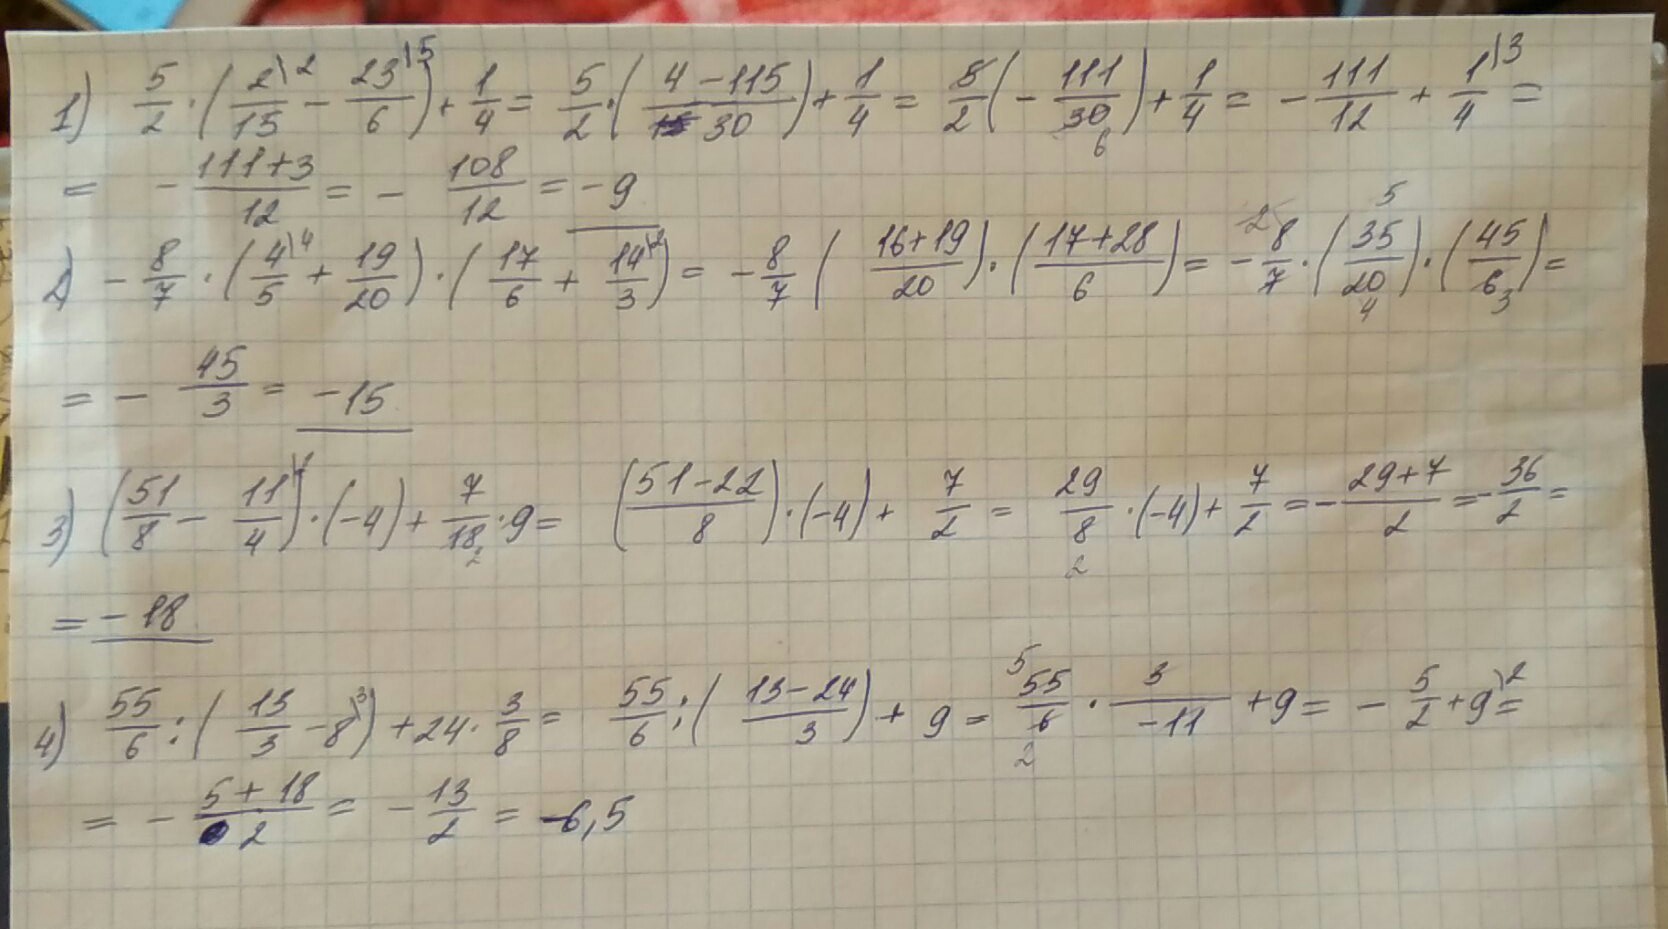 1) 5/2 · (2\2/15 − 23\5/6) + 1/4 = 5/2 · (4 − 115/30) + 1/4 = 5/2 (− 111/30 6) + 1/4 = − 111/12 + 1\3/4 =
= − 111+3/12 = − 108/12 = −9
2) − 8/7 · (4\4/5 + 19/20) · (17/6 + 14\2/3) = − 8/7 (16+19/20) · (17+28/6) = − 2 8/7 · (5 35/20 4) · (45/6 3) =
= − 45/3 = −15
3) (51/8 − 11\2/4) · (−4) + 7/18 2 · 9 = (51−22/8) · (−4) + 7/2 = 29/8 2 · (−4) + 7/2 = − 29+7/2 = − 36/2 =
= −18
4) 55/6 : (13/3 − 8\3) + 24 · 3/8 = 55/6 : (13−24/3) + 9 = 5 55/6 2 · 3/−11 + 9 = − 5/2 + 9\2 =
= − 5+18/2 = − 13/2 = −6,5